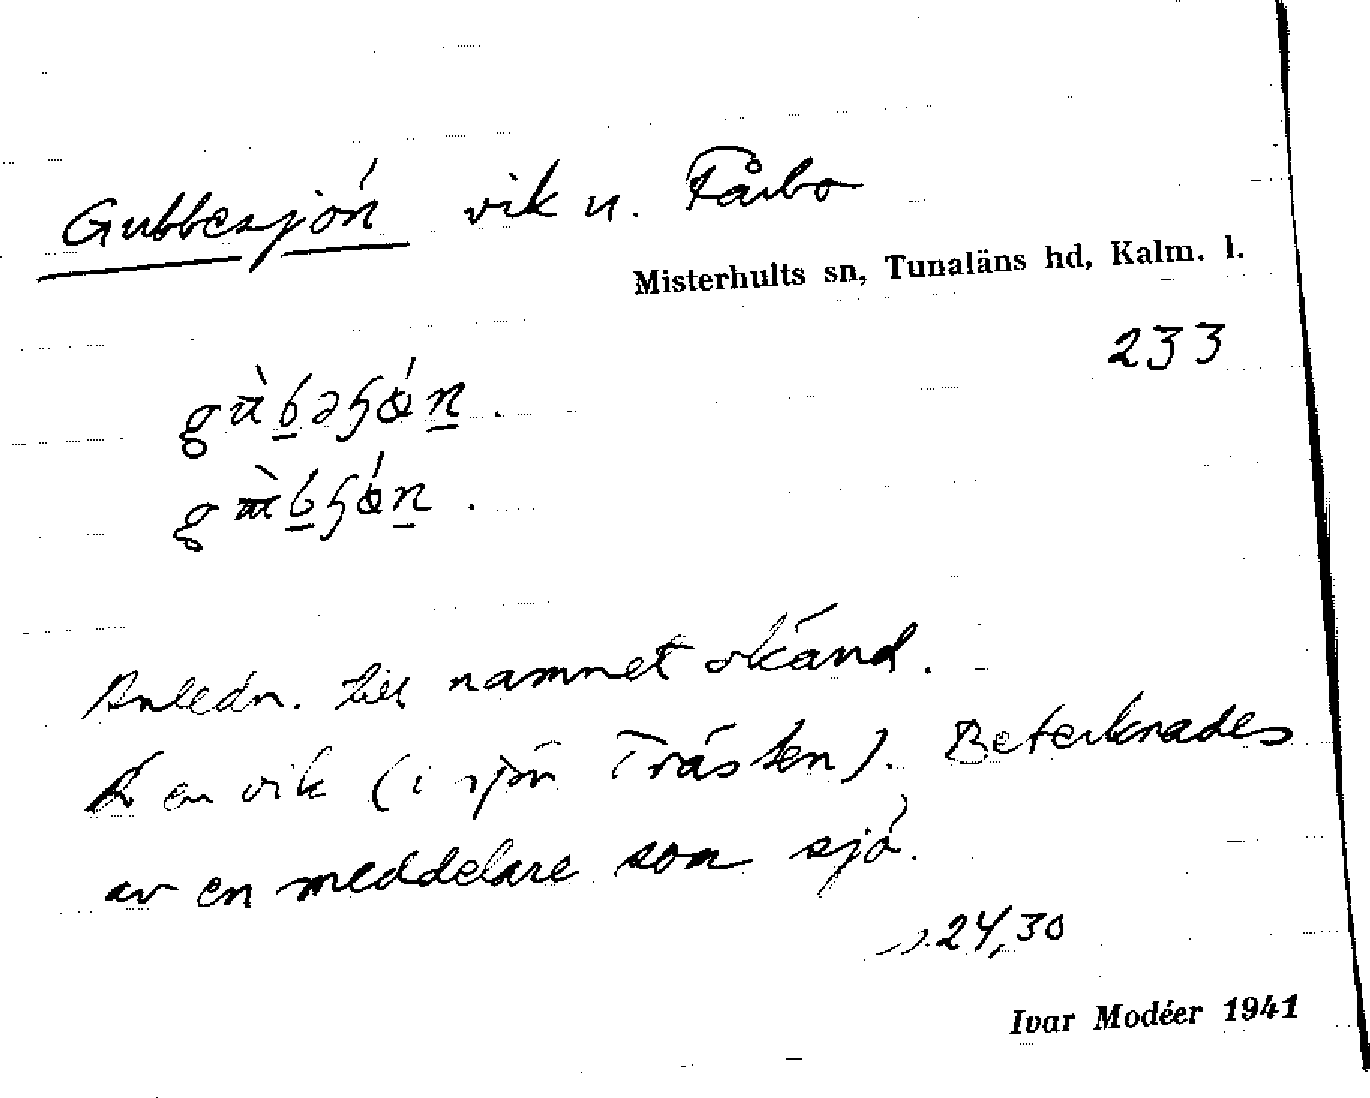 Gubbesjön vik u. Fårbo
Misterhults sn, Tunaläns hd, Kalm. l.
233
Anledn. till namnet okänd.
Är en vik (i sjön Trästen). Betecknades
av en meddelare som sjö.
s. 24, 30
Ivar Modéer 1941